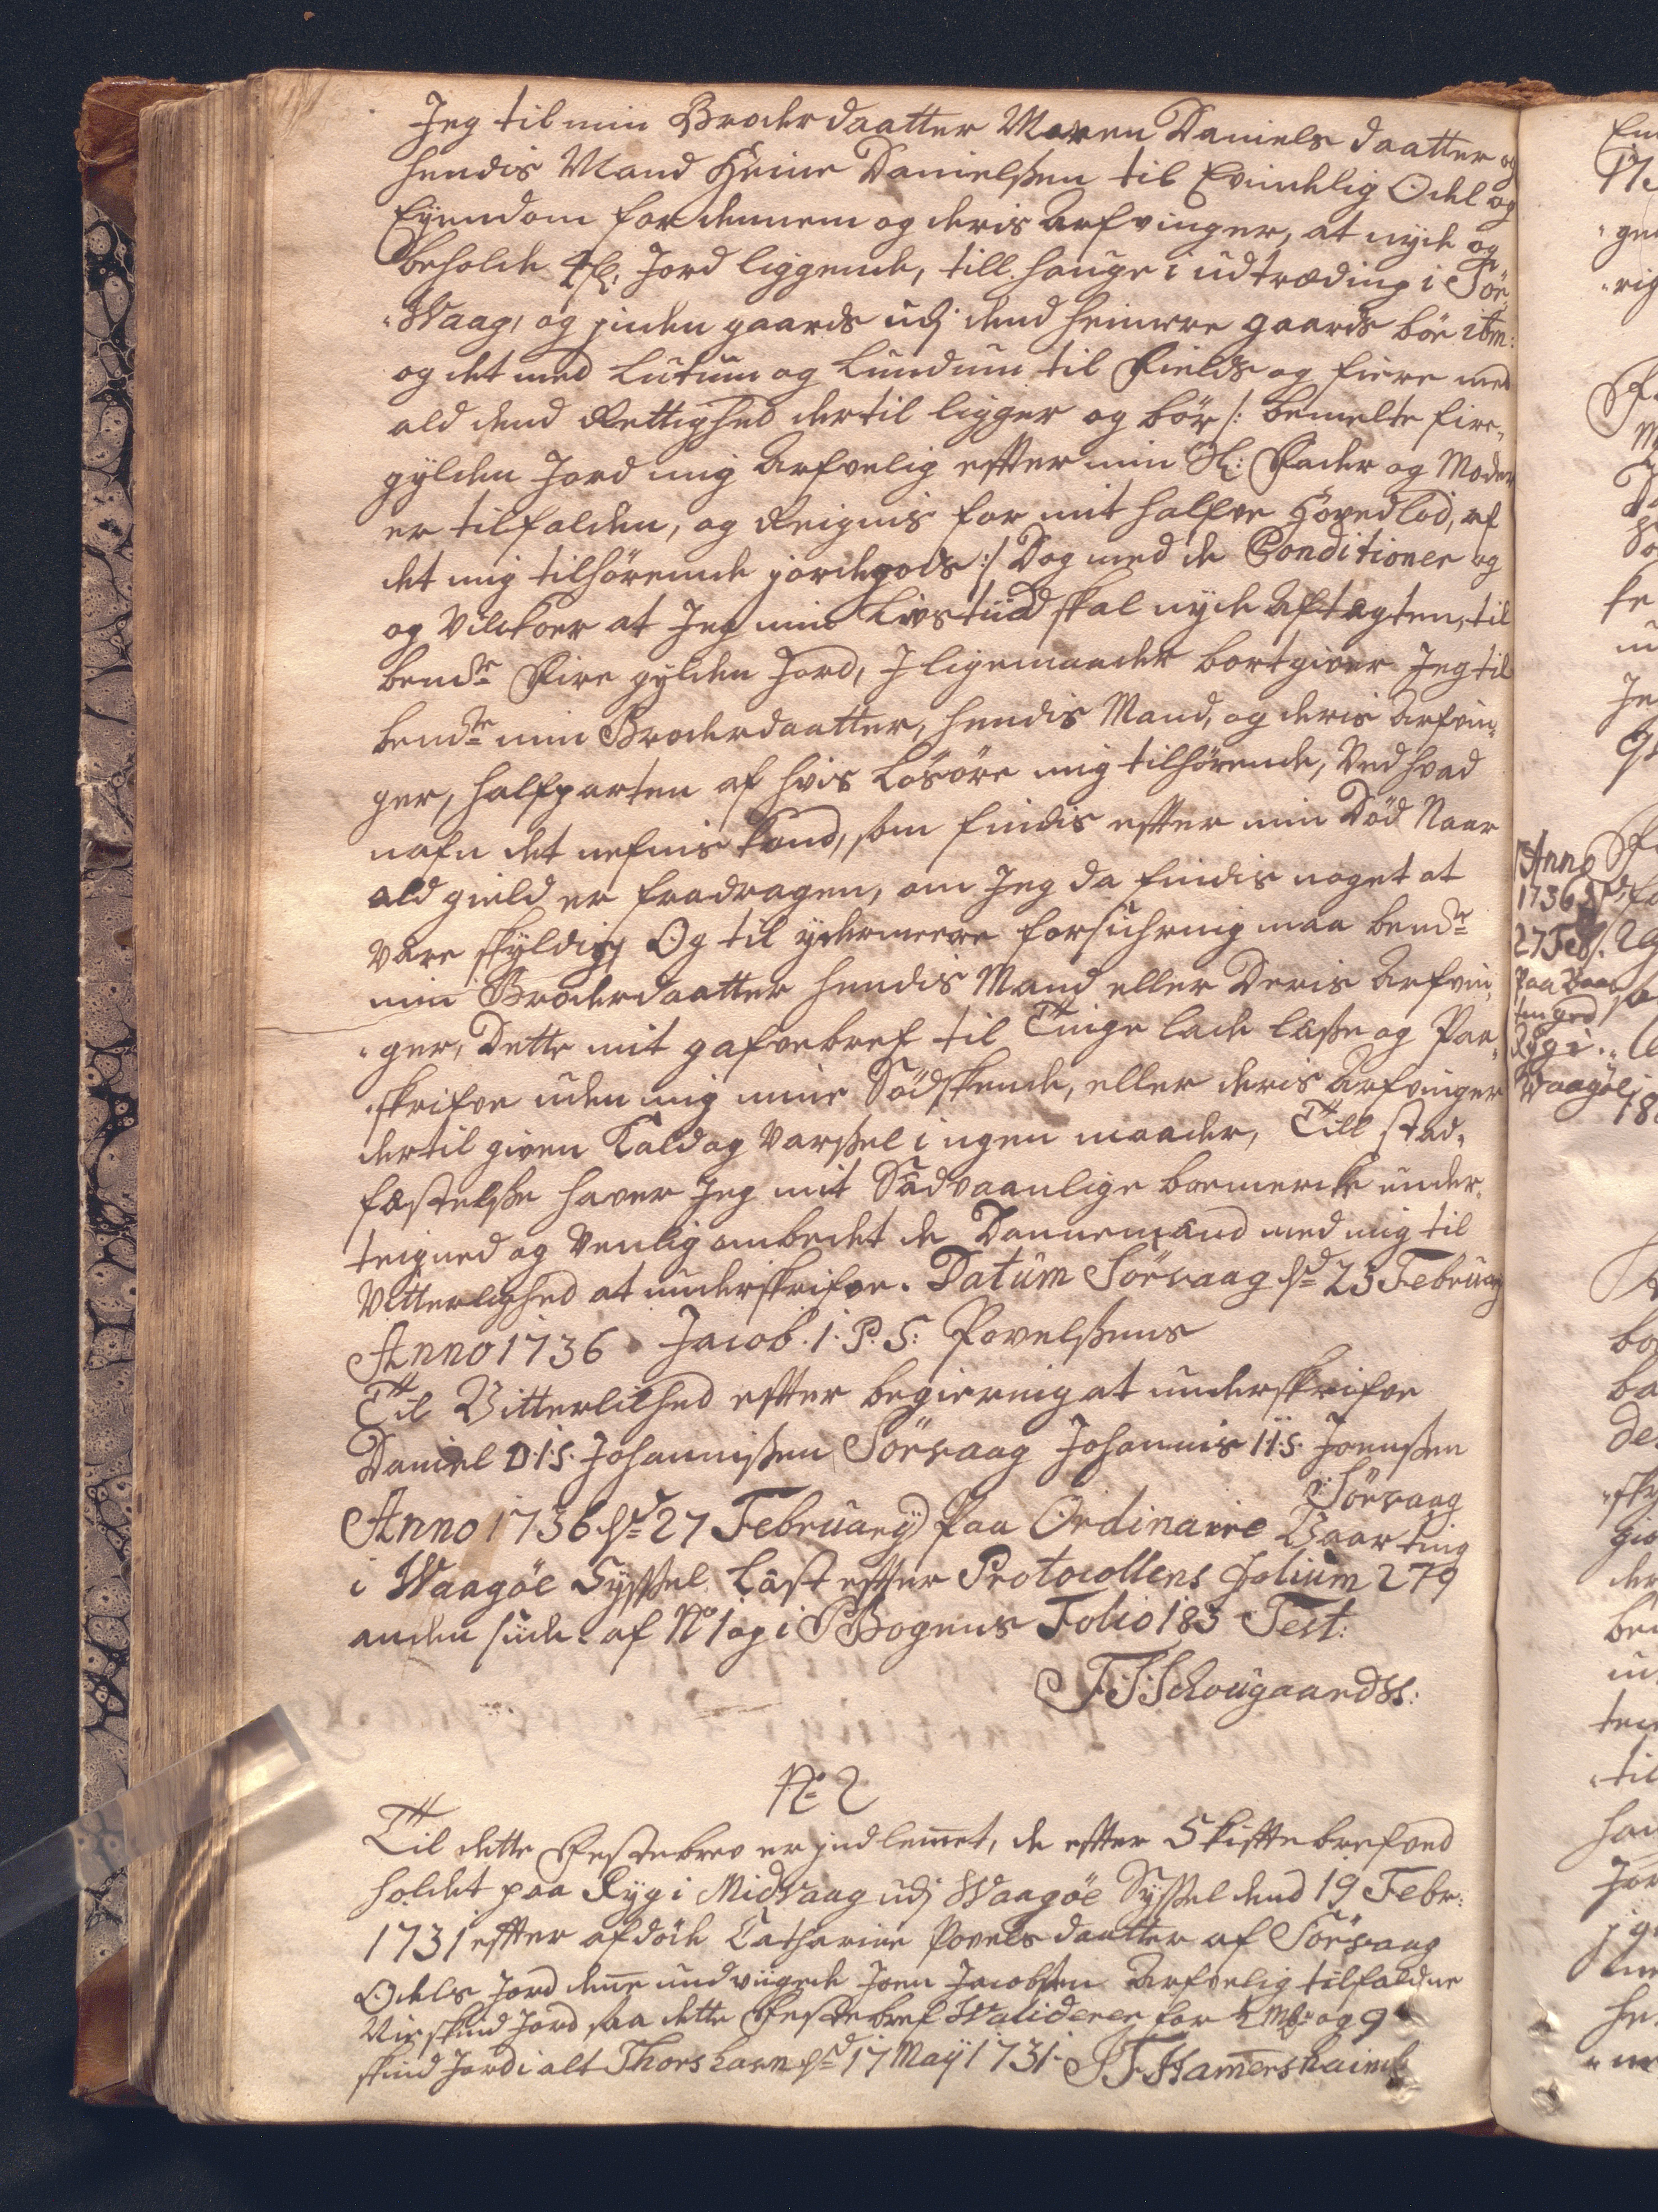 Jeg til min Broderdaatter Maren Daniels daatter og
hendis Mand Heine Danielsßen til Evindelig Odel og
Eÿendom for dennem og deris Arfvinger, at nÿde og
beholde 4 fl: Jord liggende, till hauge i udtræding i Sör-
"Waag, og jnden gaards udj dend heimere gaards böe ibm:
og det med Lutum og Lundum til Fields og fiere med
ald dend Rettighed dertil ligger og bör /: bemelte fire
gÿlden Jord mig Arfvelig effter min Sl: Fader og Moder
er tilfalden, og Reignis for mit halfve Hovedlod, af
det mig tilhörende jordegods :/ Dog med de Conditioner og
og Vilckoer at Jeg min Livstiid skal nÿde Aftegten, til
bemdte Fire gÿlden Jord, J ligemaader bortgiver Jeg til
bemdte min Broderdaatter, hendis Mand, og deris Arfvin-
ger, halfparten af hvis Lösöre mig tilhörende, Ved hvad
nafn det nefnis kand, som findis effter min Död Naar
ald gield er fradragen, om Jeg da findis noget at
være skÿldig Og til ÿdermeere forsichring maa bemdte
min Broderdaatter hendis Mand eller Deris Arfvin-
"ger, Dette mit gafvebref til Tinge lade læße og Paa-
"skrifve uden mig mine Södskende, eller deris Arfvinger
dertil given Kald og Varßel i ngen maader, Till stad-
fæstelße haver Jeg mit Sædvaanlige boemercke under-
teigned og Venlig ombedet de Dannemænd med mig til
Vitterlighed at underskrifve. Datum Sörvaag d: 23 Februarÿ
Anno 1736 Jacob. I. P. S: Povelsßens
Til Vitterlihed effter begiering at underskrifve
Daniel D.I.S. Johannisßen Sörvaag Johannis I.I.S. Joenßen
Sörvaag
Anno 1736 d: 27 Februarÿ Paa Ordinaire Vaarting
i Waagöe Sÿßel Læst effter Protocollens Folium 279
anden siide af No 1 og i PBogens Folio 183 Test:
F:S:Schougaard SS:
No 2
Til dette Festebrev er jndlemet, de effter Skifftebref ved
holdet paa Rÿg i Midvaag udj Waagöe Sÿßel dend 19 Febr:
1731 effter afdöde Catharine Povels daatter af Sörvaag
Odels Jord denne undviigede Joen Jacobßen Arfvelig tilfaldne
Nie skind Jord saa dette Festebref Waliderer for ½ Mk: og 9
skind Jord i alt Thorshavn d: 17 Maÿ 1731. JF Hamershaimb
Anno
1736 d
27 Feb.
Paa Vaar
ting ved
Rÿg i
Waagöe